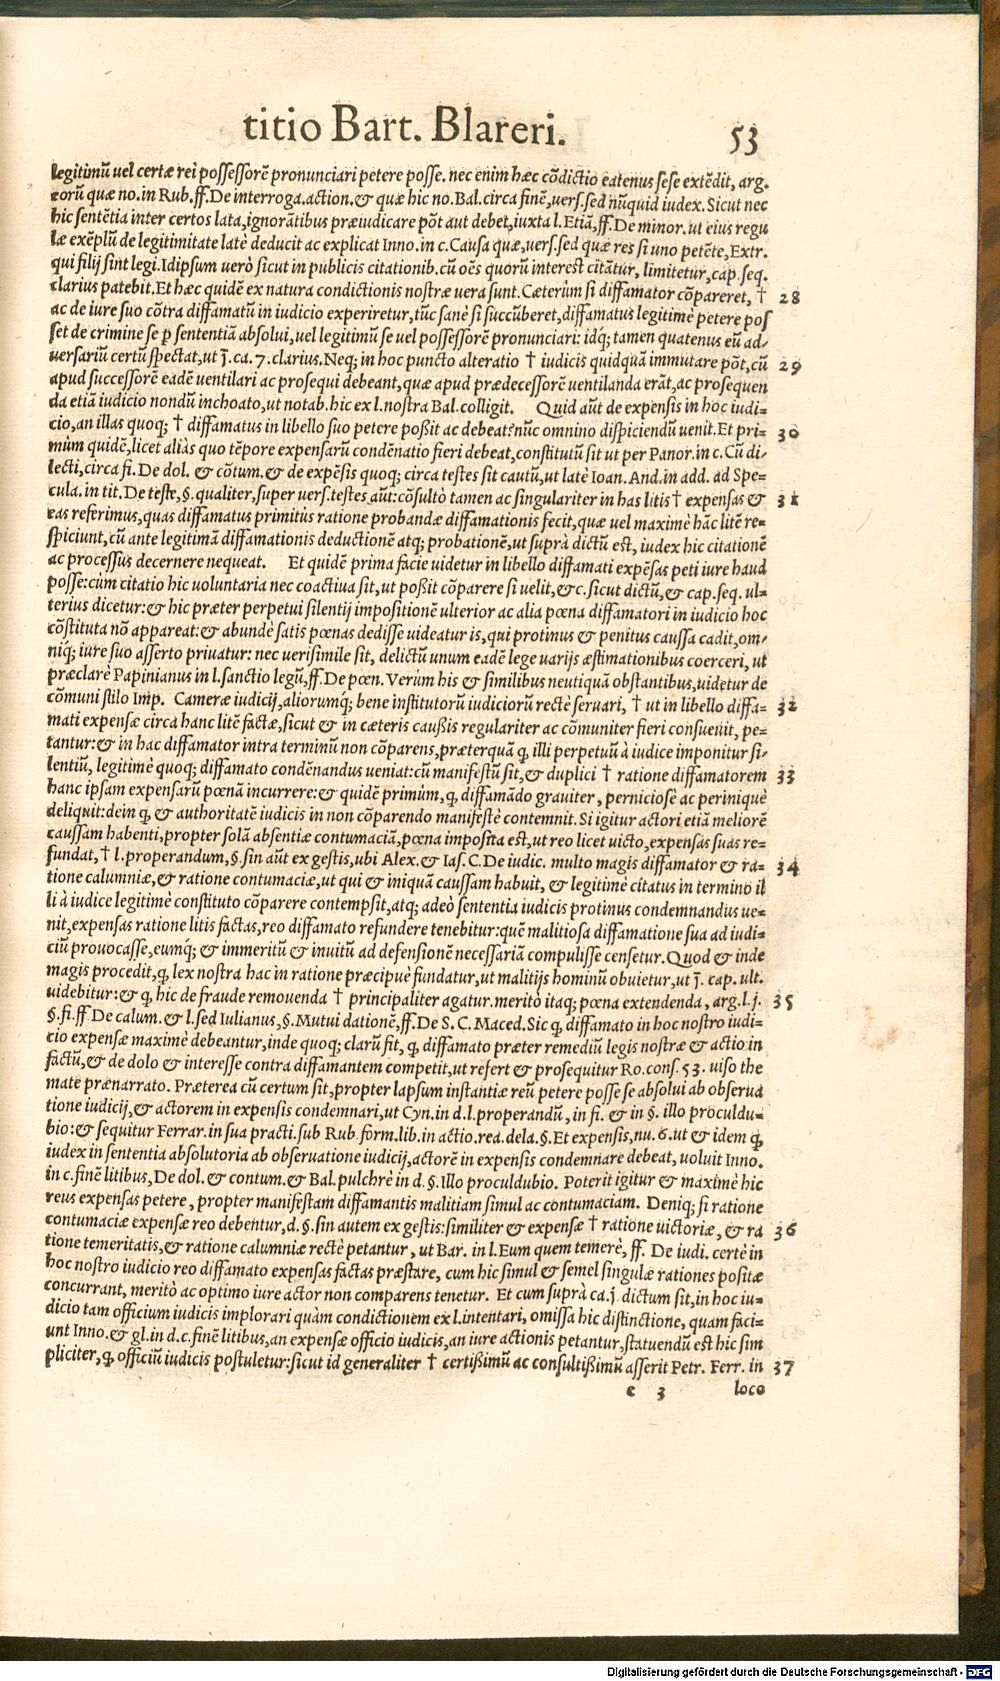 titio Bart. Blareri. 53
legitimũ uel certæ rei possessorẽ pronunciari petere posse. nec enim hæc cõdictio eatenus sese extẽdit, arg.
eorũ quæ no. in Rub. ff. De interroga. action. & quæ hic no. Bal. circa finẽ, uers. sed nũquid iudex. Sicut nec
hic sentẽtia inter certos lata, ignorãtibus præiudicare põt aut debet, iuxta l. Etiã, ff. De minor. ut eius regu
læ exẽplũ de legitimitate latè deducit ac explicat Inno. in c. Causa quæ, uers. sed quæ res si uno petẽte, Extr.
qui filij sint legi. Idipsum uerò sicut in publicis citationib. cũ oẽs quorũ interest citãtur, limitetur, cap. seq.
clarius patebit. Et hæc quidẽ ex natura condictionis nostræ uera sunt. Cæterùm si diffamator cõpareret, † 28
ac de iure suo cõtra diffamatũ in iudicio experiretur, tũc sanè si succũberet, diffamatus legitimè petere pos
set de crimine se p sententiã absolui, uel legitimũ se uel possessorẽ pronunciari: idq; tamen quatenus eũ ad-
uersariũ certũ spectat, ut j. ca. 7. clarius. Neq; in hoc puncto alteratio † iudicis quidquã immutare põt, cũ 29
apud successorẽ eadẽ uentilari ac prosequi debeant, quæ apud prædecessorẽ uentilanda erãt, ac prosequen
da etiã iudicio nondũ inchoato, ut notab. hic ex l. nostra Bal. colligit. Quid aũt de expensis in hoc iudi=
cio, an illas quoq; † diffamatus in libello suo petere poßit ac debeat? nũc omnino dispiciendũ uenit. Et pri= 30
mùm quidẽ, licet aliàs quo tẽpore expensarũ condẽnatio fieri debeat, constitutũ sit ut per Panor. in c. Cũ di=
lecti, circa fi. De dol. & cõtum. & de expẽsis quoq; circa testes sit cautũ, ut latè Ioan. And. in add. ad Spe=
cula. in tit. De teste, §. qualiter, super uers. testes aũt: cõsultò tamen ac singulariter in has litis † expensas & 31
eas referimus, quas diffamatus primitùs ratione probandæ diffamationis fecit, quæ uel maximè hãc litẽ re=
spiciunt, cũ ante legitimã diffamationis deductionẽ atq; probationẽ, ut suprà dictũ est, iudex hic citationẽ
ac processus decernere nequeat. Et quidẽ prima facie uidetur in libello diffamati expẽsas peti iure haud
posse: cùm citatio hic uoluntaria nec coactiua sit, ut poßit cõparere si uelit, &c. sicut dictũ, & cap. seq. ul=
terius dicetur: & hic præter perpetui silentij impositionẽ ulterior ac alia pœna diffamatori in iudicio hoc
cõstituta nõ appareat: & abundè satis pœnas dedisse uideatur is, qui protinus & penitus caussa cadit, om-
niq; iure suo asserto priuatur: nec uerisimile sit, delictũ unum eadẽ lege uarijs æstimationibus coerceri, ut
præclarè Papinianus in l. sanctio legũ, ff. De pœn. Verùm his & similibus neutiquã obstantibus, uidetur de
cõmuni stilo Imp. Cameræ iudicij, aliorumq́; bene institutorũ iudiciorũ rectè seruari, † ut in libello diffa= 32
mati expensæ circa hanc litẽ factæ, sicut & in cæteris caußis regulariter ac cõmuniter fieri consueuit, pe=
tantur: & in hac diffamator intra terminũ non cõparens, præterquã q illi perpetuũ à iudice imponitur si-
lentiũ, legitimè quoq; diffamato condẽnandus ueniat: cũ manifestũ sit, & duplici † ratione diffamatorem 33
hanc ipsam expensarũ pœnã incurrere: & quidẽ primùm, q diffamãdo grauiter, perniciosè ac periniquè
deliquit: dein q & authoritatẽ iudicis in non cõparendo manifestè contemnit. Si igitur actori etiã meliorẽ
caussam habenti, propter solã absentiæ contumaciã, pœna imposita est, ut reo licet uicto, expensas suas re=
fundat, † l. properandum, §. sin aũt ex gestis, ubi Alex. & Ias. C. De iudic. multo magis diffamator & ra= 34
tione calumniæ, & ratione contumaciæ, ut qui & iniquã caussam habuit, & legitimè citatus in termino il
li à iudice legitimè constituto cõparere contempsit, atq; adeò sententia iudicis protinus condemnandus ue=
nit, expensas ratione litis factas, reo diffamato refundere tenebitur: quẽ malitiosa diffamatione sua ad iudi=
ciũ prouocasse, eumq́; & immeritũ & inuitũ ad defensionẽ necessariã compulisse censetur. Quod & inde
magis procedit, q lex nostra hac in ratione præcipuè fundatur, ut malitijs hominũ obuietur, ut j. cap. ult.
uidebitur: & q hic de fraude remouenda † principaliter agatur. meritò itaq; pœna extendenda, arg. l. j. 35
§. fi. ff De calum. & l. sed Iulianus, §. Mutui dationẽ, ff. De S. C. Maced. Sic q diffamato in hoc nostro iudi=
cio expensæ maximè debeantur, inde quoq; clarũ fit, q diffamato præter remediũ legis nostræ & actio in
factũ, & de dolo & interesse contra diffamantem competit, ut refert & prosequitur Ro. cons. 53. uiso the
mate prænarrato. Præterea cũ certum sit, propter lapsum instantiæ reũ petere posse se absolui ab obserua
tione iudicij, & actorem in expensis condemnari, ut Cyn. in d. l. properandũ, in fi. & in §. illo proculdu=
bio: & sequitur Ferrar. in sua practi. sub Rub. form. lib. in actio. rea. dela. §. Et expensis, nu. 6. ut & idem q
iudex in sententia absolutoria ab obseruatione iudicij, actorẽ in expensis condemnare debeat, uoluit Inno.
in c. finẽ litibus, De dol. & contum. & Bal. pulchrè in d. §. Illo proculdubio. Poterit igitur & maximè hic
reus expensas petere, propter manifestam diffamantis malitiam simul ac contumaciam. Deniq; si ratione
contumaciæ expensæ reo debentur, d. §. sin autem ex gestis: similiter & expensæ † ratione uictoriæ, & ra 36
tione temeritatis, & ratione calumniæ rectè petantur, ut Bar. in l. Eum quem temerè, ff. De iudi. certè in
hoc nostro iudicio reo diffamato expensas factas præstare, cum hic simul & semel singulæ rationes positæ
concurrant, meritò ac optimo iure actor non comparens tenetur. Et cum suprà ca. j. dictum sit, in hoc iu=
dicio tam officium iudicis implorari quàm condictionem ex l. intentari, omissa hic distinctione, quam faci=
unt Inno. & gl. in d. c. finẽ litibus, an expensæ officio iudicis, an iure actionis petantur, statuendũ est hic sim
pliciter, q officiũ iudicis postuletur: sicut id generaliter † certißimũ ac consultißimũ asserit Petr. Ferr. in 37
e 3 loco
Digitalisierung gefördert durch die Deutsche Forschungsgemeinschaft - DFG